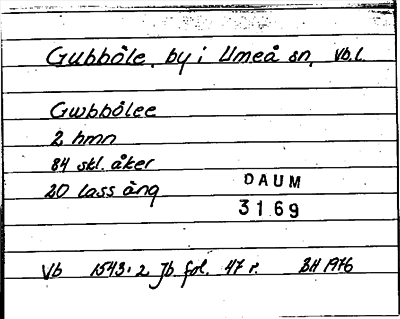 Gubböle, by i Umeå sn, Vb.l.
Gwbbölee
2 hmn
84 skl. åker
20 lass äng
DAUM
3169
Vb 1543:2 Jb fol. 47 r. BH 1976